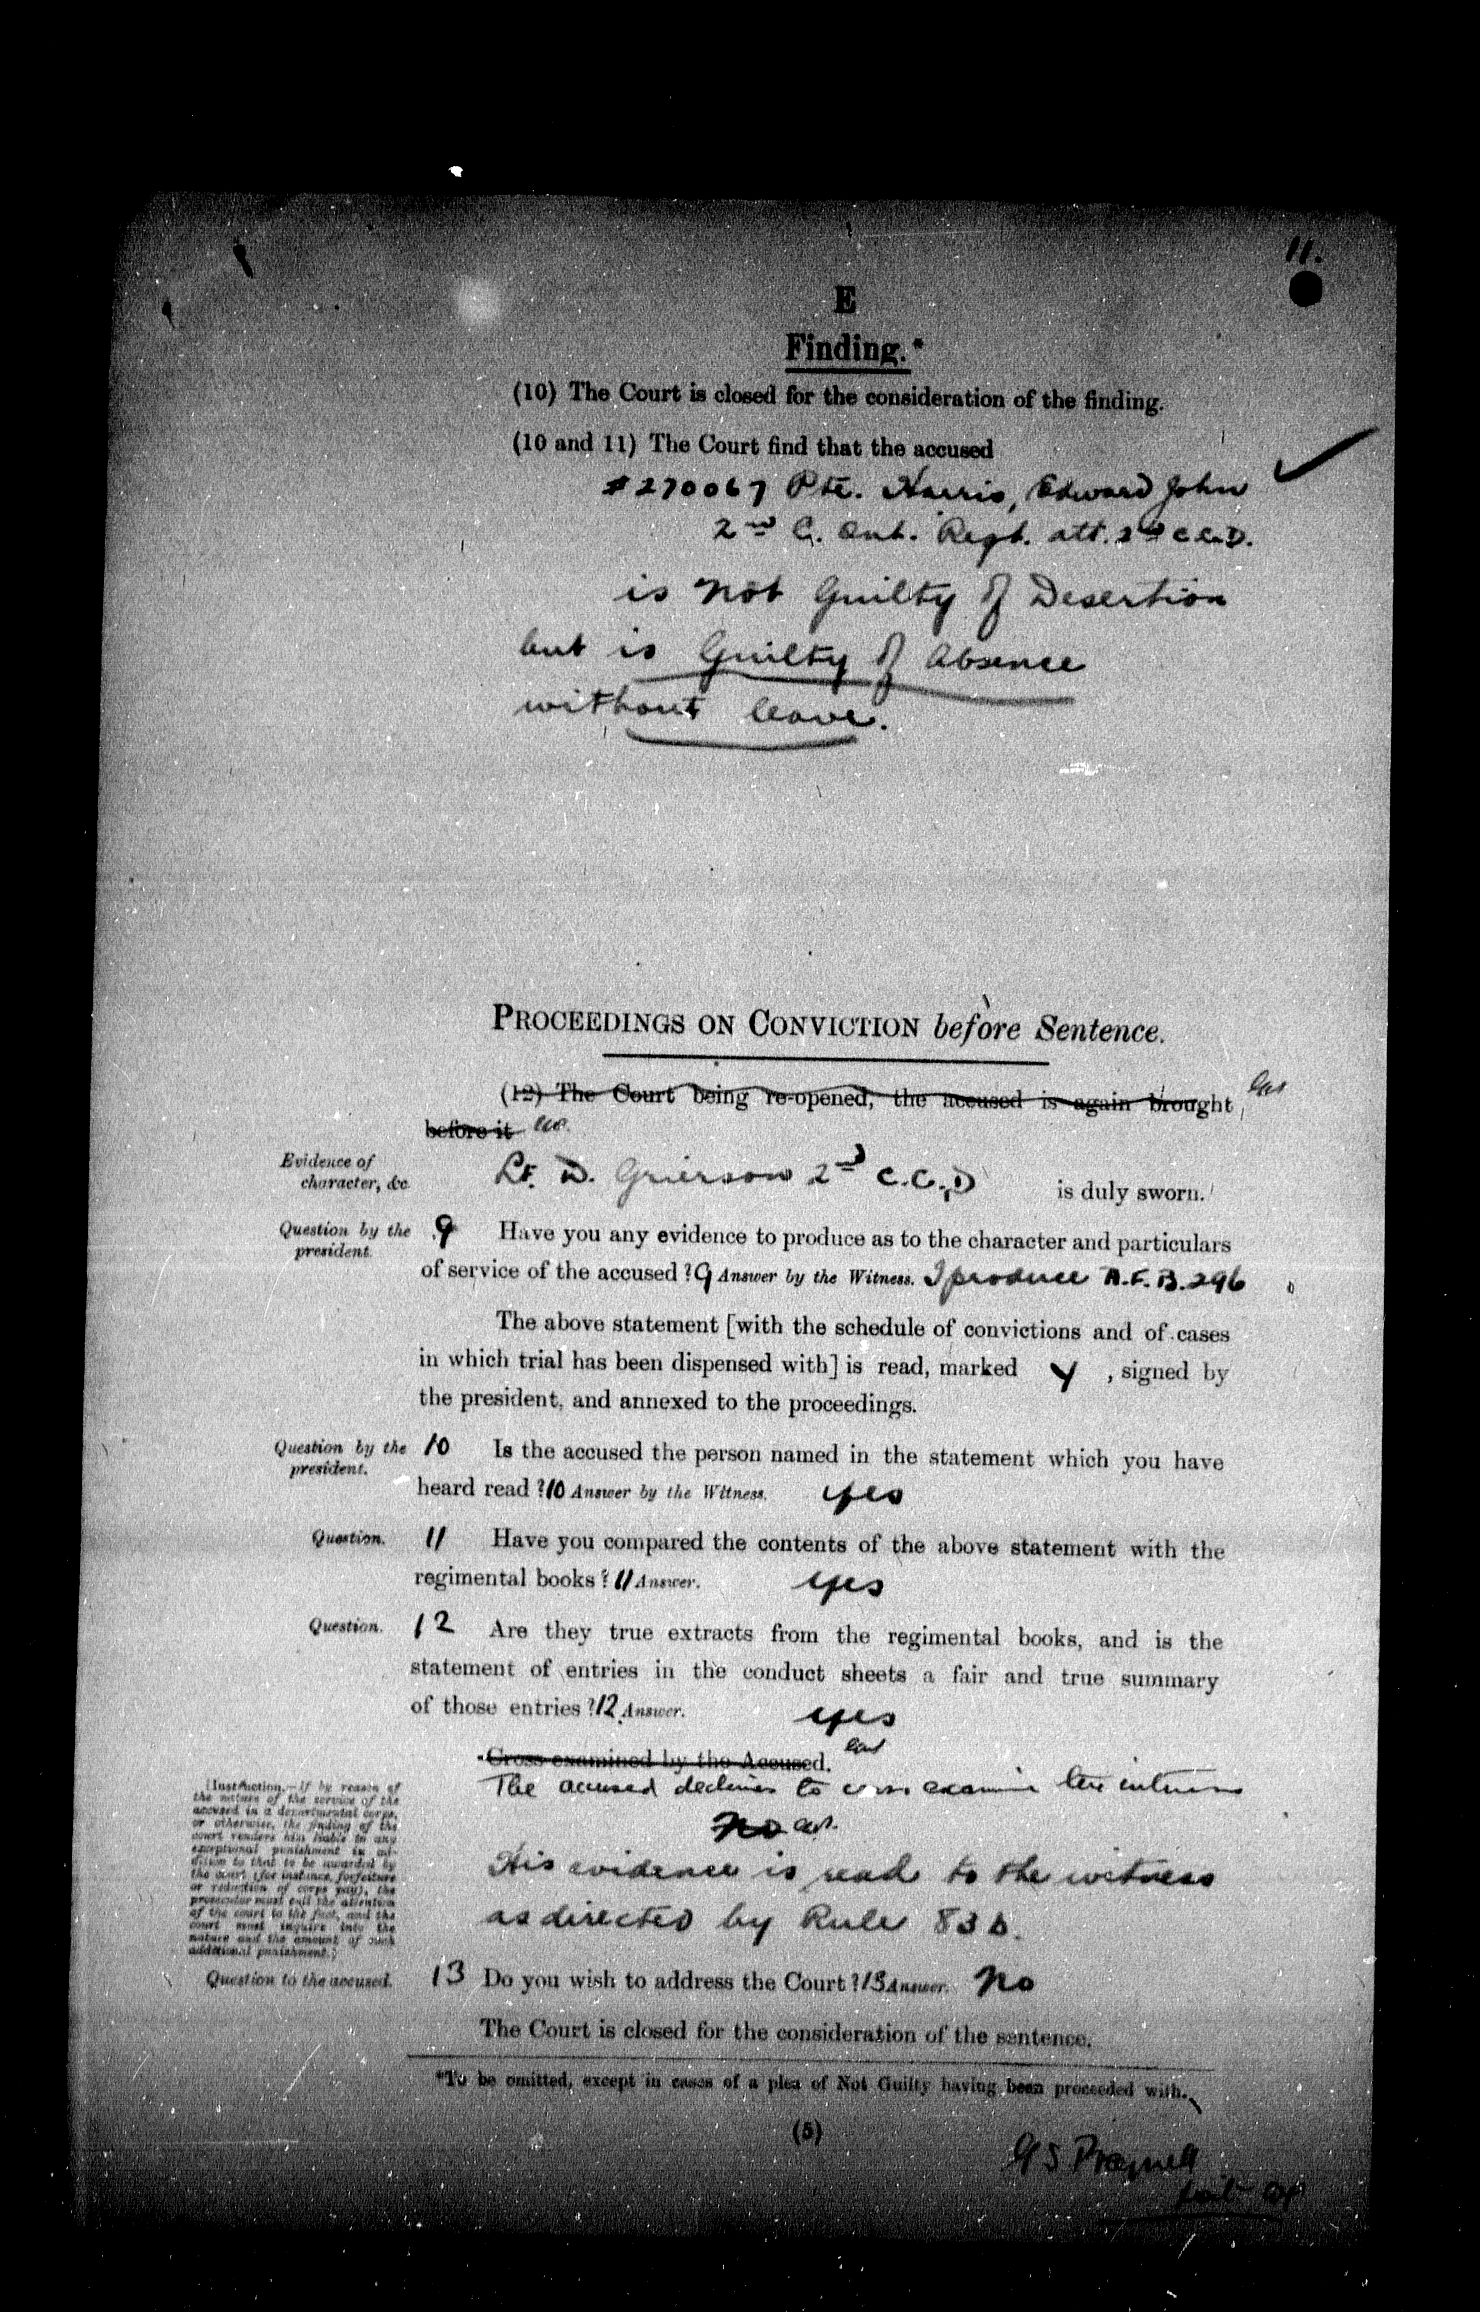 11.
E
Finding.*
(10) The Court is closed for the consideration of the finding.
(10 and 11) The Court find that the accused
#270067 Pte. Harris, Edward John
2nd C. Ont. Regt. att. 2nd C.C.D.
is not Guilty of Desertion
but is Guilty of absence
without leave.
PROCEEDINGS ON CONVICTION before Sentence.
(12) The Court being re-opened, the accused is again brought
before it
Evidence of
character, &c.
Lt. D. Grierson 2nd C.C.D is duly sworn.
Question by the
president.
9 Have you any evidence to produce as to the character and particulars
of service of the accused ? 9 Answer by the Witness. I produce A.F.B.296
The above statement [with the schedule of convictions and of cases
in which trial has been dispensed with] is read, marked Y , signed by
the president, and annexed to the proceedings.
Question by the
president.
10 Is the accused the person named in the statement which you have
heard read ? 10 Answer by the Witness. yes
Question. 11 Have you compared the contents of the above statement with the
regimental books ? 11 Answer. yes
Question. 12 Are they true extracts from the regimental books, and is the
statement of entries in the conduct sheets a fair and true summary
of those entries ? 12 Answer. yes
Cross-examined by the Accused.
The accused declines to cross examine the witness
No
His evidence is read to the witness
as directed by Rule 83 b.
[Instruction.—If by reason of
the nature of the service of the
accused in a departmental corps,
or otherwise, the finding of the
court renders him liable to any
exceptional punishment in ad-
dition to that to be awarded by
the court (for instance, forfeiture
or reduction of corps pay), the
prosecutor must call the attention
of the court to the fact, and the
court must inquire into the
nature and the amount of such
additional punishment.]
Question to the accused. 13 Do you wish to address the Court ? 13 Answer. No
The Court is closed for the consideration of the sentence.
*To be omitted, except in cases of a plea of Not Guilty having been proceeded with.
(5)